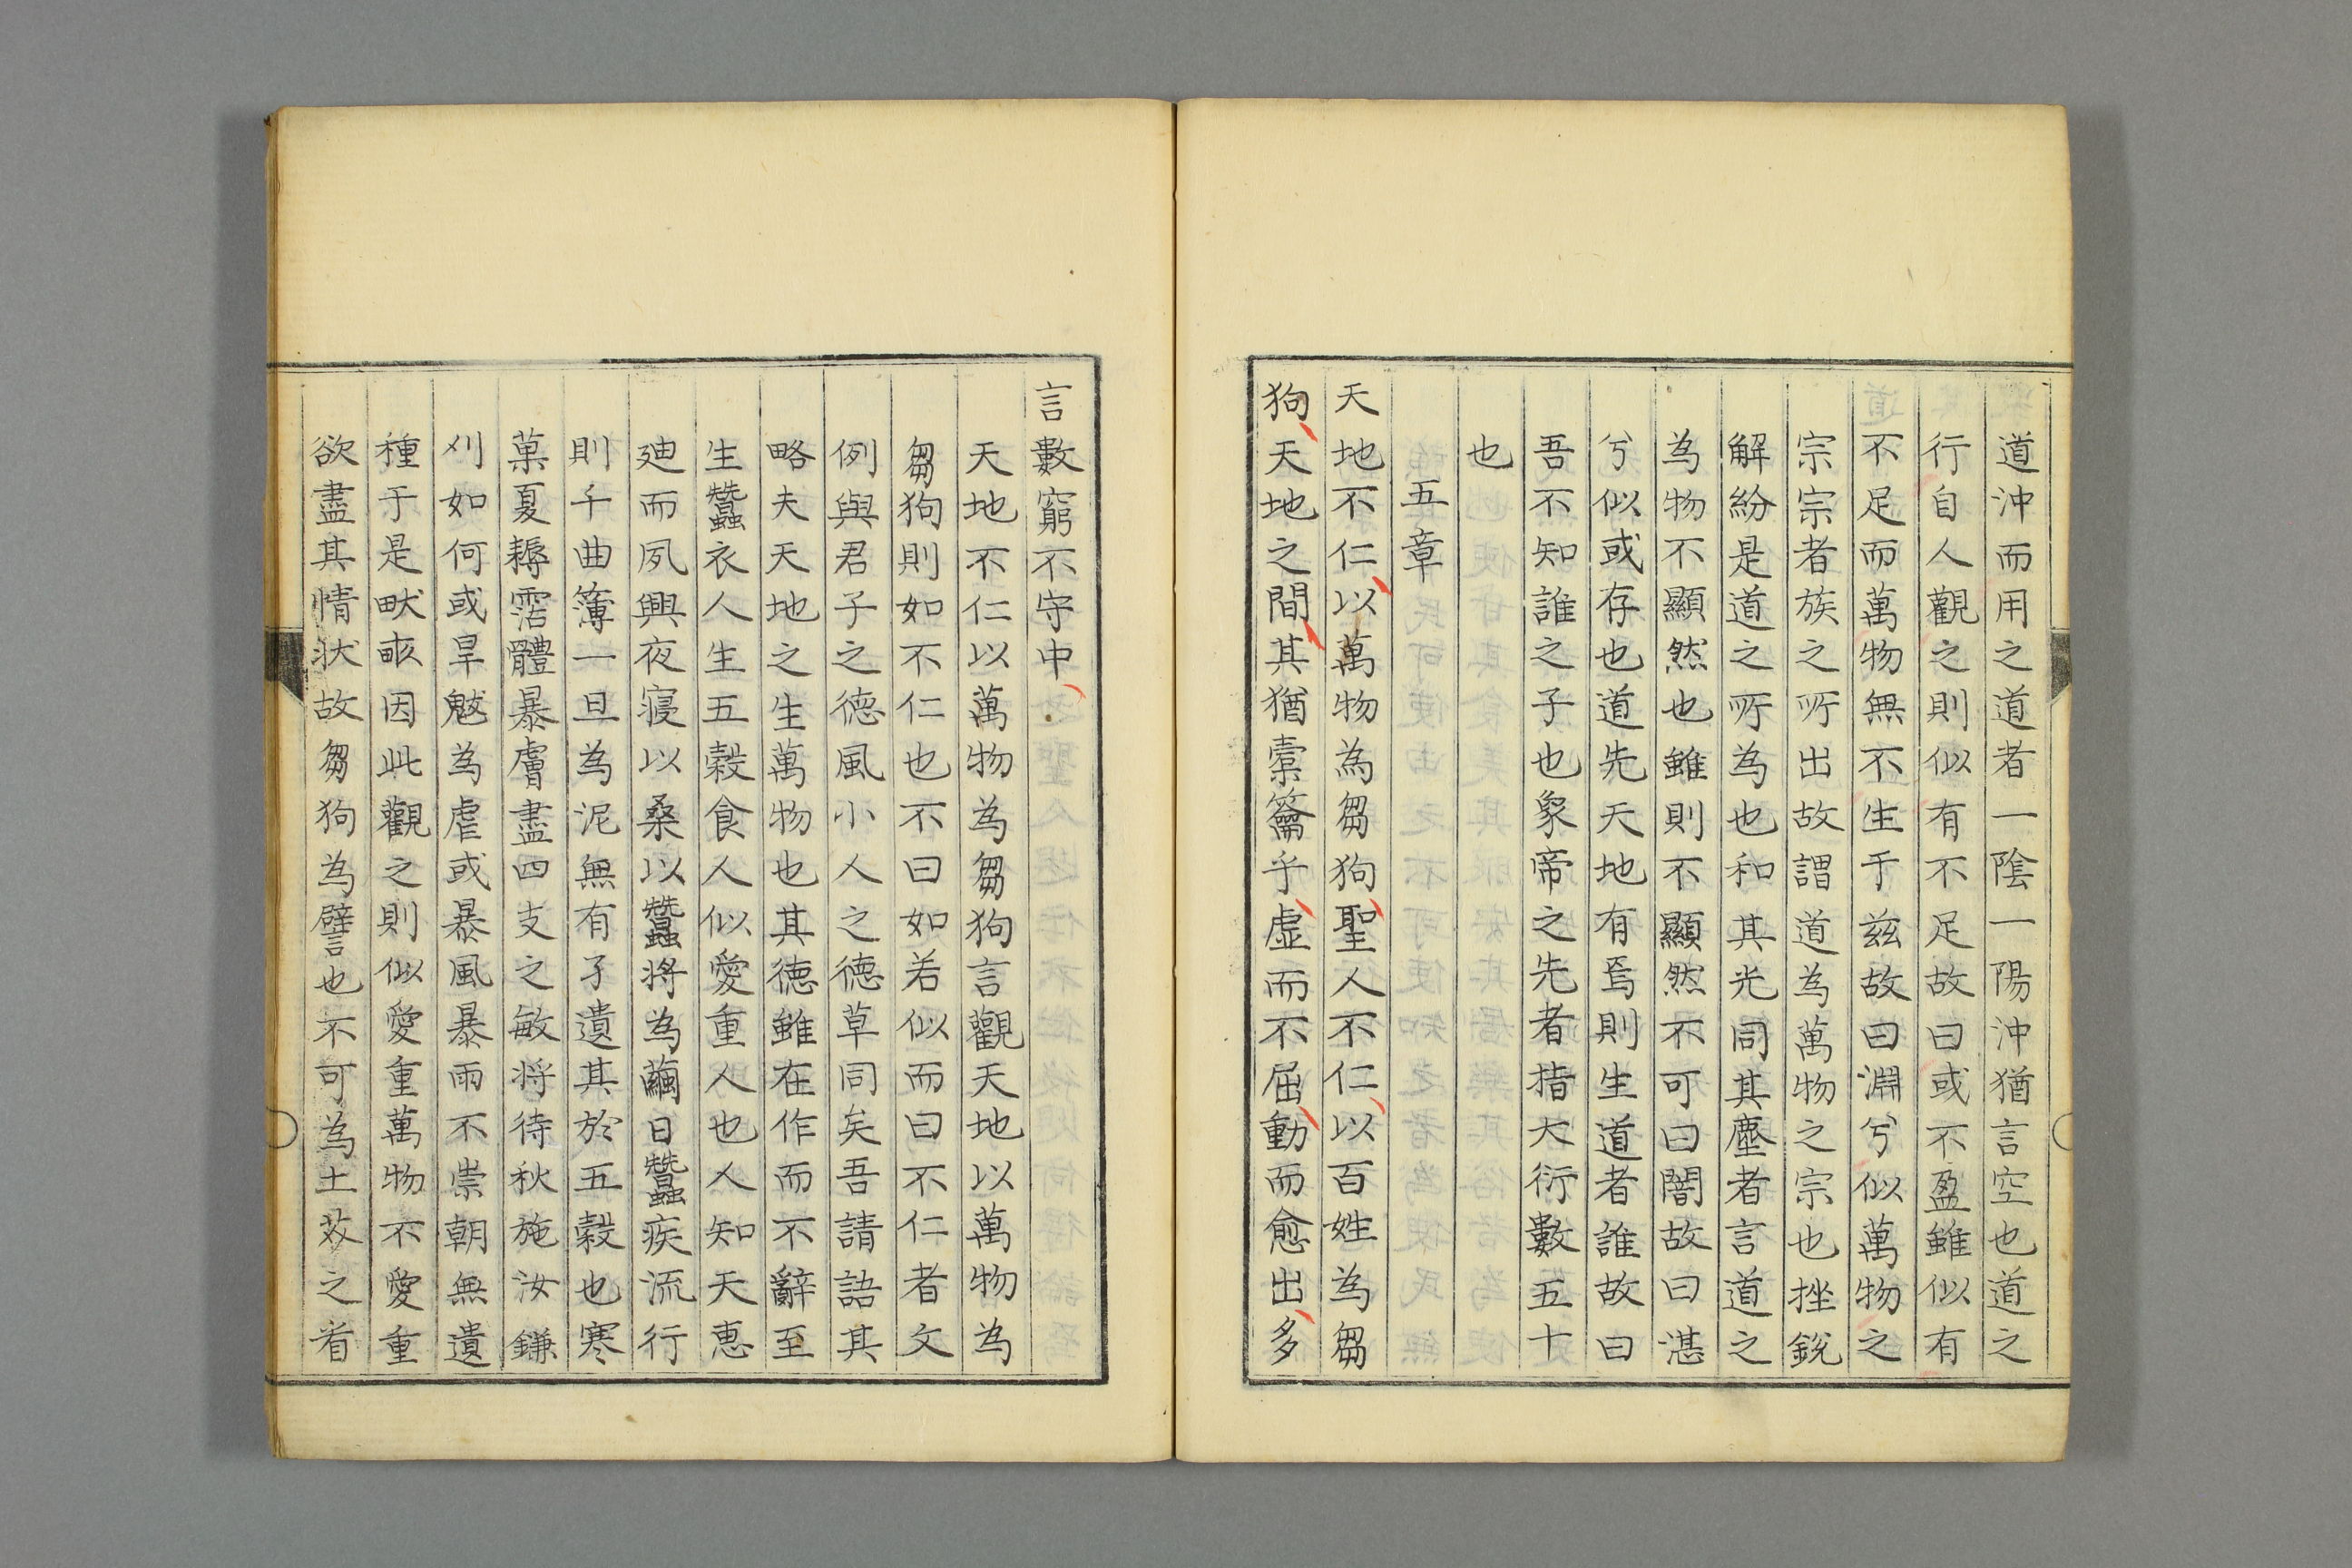 道沖而用之道者一陰一陽沖猶言空也道之
行自人觀之則似有不足故曰或不盈雖似有
不足而萬物無不生于兹故曰淵兮似萬物之
宗宗者族之所出故謂道為萬物之宗也挫銳
解紛是道之所為也和其光同其塵者言道之
為物不顯然也雖則不顯然不可曰闇故曰湛
兮似或存也道先天地有焉則生道者誰故曰
吾不知誰之子也象帝之先者指大衍數五十
也
五章
天地不仁以萬物為芻狗聖人不仁以百姓為芻
狗天地之間其猶橐籥乎虛而不屈動而愈出多
言數窮不守中
天地不仁以萬物為芻狗言觀天地以萬物為
芻狗則如不仁也不曰如若似而曰不仁者文
例與君子之德風小人之德草同矣吾請語其
略夫天地之生萬物也其德雖在作而不辭至
生蠶衣人生五穀食人似愛重人也人知天惠
廸而夙興夜寢以桑以蠶將為繭日蠶疾流行
則千曲簿一旦為泥無有孑遺其於五穀也寒
菓夏耨霑體暴膚盡四支之敏將待秋施汝鎌
刈如何或旱魃為虐或暴風暴雨不崇朝無遺
種于是畎畝因此觀之則似愛重萬物不愛重
欲盡其情狀故芻狗為譬也不可為土苃之省